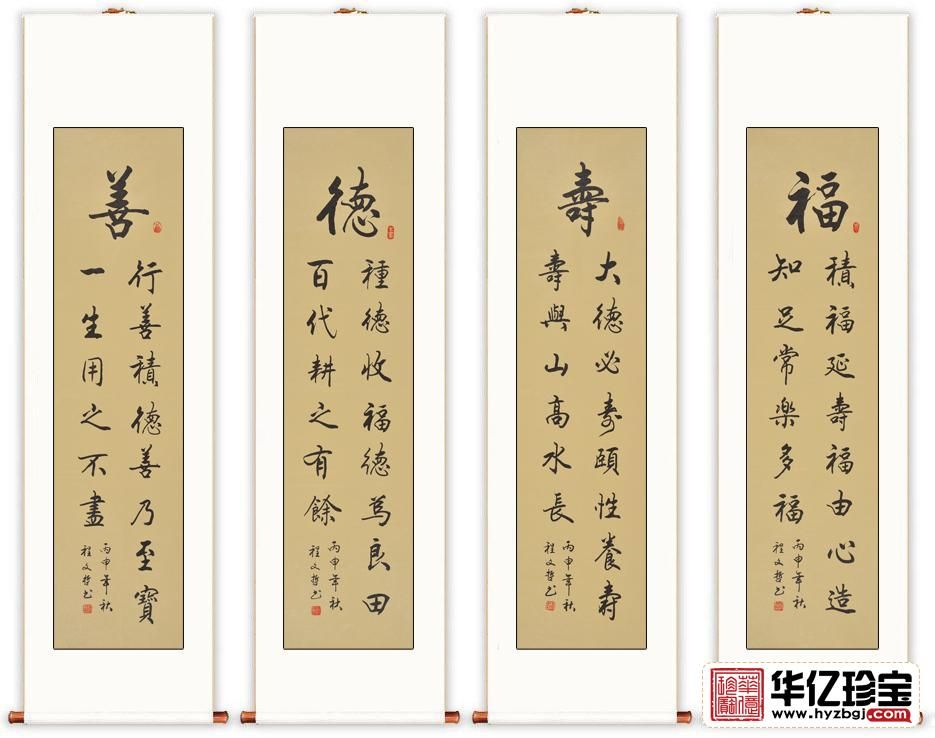 福
積福延壽福由心造
知足常楽多福
丙申年秋
程文哲书
壽
大德必寿頤性養寿
壽與山高水長
丙申年秋
程文哲书
德
種德收福德為良田
百代耕之有餘
丙申年秋
程文哲书
善
行善積德善乃至寶
一生用之不盡
丙申年秋
程文哲书
華億珍寶
华亿珍宝
www.hyzbgj.com